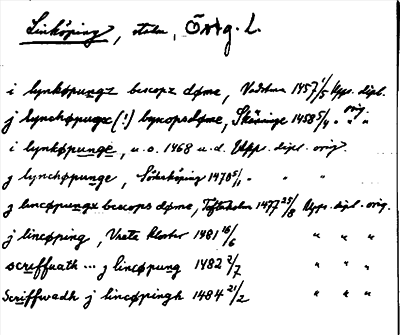 Linköping, stad, Östg. l.
i lynkøpungz bescopz døme, Vadstena 1457 1/5 Upps. dipl.
j lynchøpungx (!) byscopsdøme, Skänninge 1458 5/4 " orig. "
i lynkøpunge, u.o. 1468 u.d. Upps. dipl. orig.
j lynchøpunge, Söderköping 1470 5/1 " "
j lincøpungx bescops døme, 1477 25/8 Upps. dipl. orig.
j lincøping, Vreta kloster 1481 16/6 " " "
scriffuath ... j lincøpung 1482 2/7 " " "
Scriffwadh j lincøpingh 1484 21/2 " " "